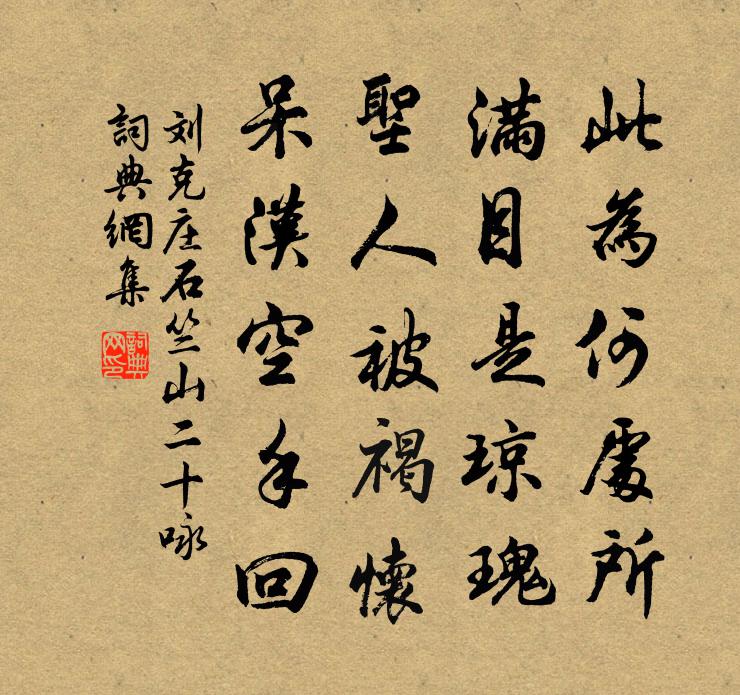 此為何處所
滿目是琼瑰
聖人被褐懷
呆漢空手回
刘克庄石竺山二十咏
詞典網集
詞典网印